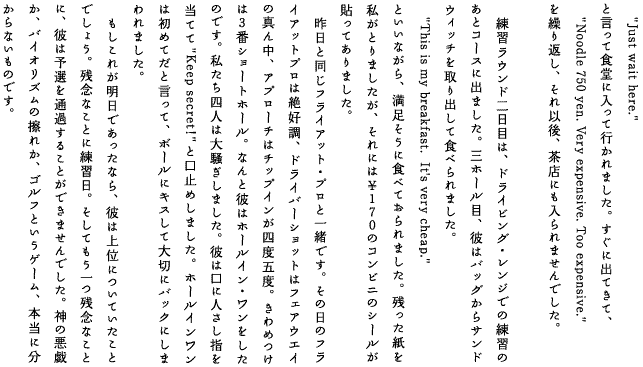 "Just wait here."
と言って食堂に入って行かれました。すぐに出てきて、
"Noodle 750 yen. Very expensive. Too expensive."
を繰り返し、それ以後、茶店にも入られませんでした。
練習ラウンド二日目は、ドライビング・レンジでの練習の
あとコースに出ました。三ホール目、彼はバッグからサンド
ウィッチを取り出して食べられました。
"This is my breakfast. It's very cheap."
といいながら、満足そうに食べておられました。残った紙を
私がとりましたが、それには¥170のコンビニのシールが
貼ってありました。
昨日と同じフライアット・プロと一緒です。その日のフラ
イアットプロは絶好調、ドライバーショットはフェアウエイ
の真ん中、アプローチはチップインが四度五度。きわめつけ
は3番ショートホール。なんと彼はホールイン・ワンをした
のです。私たち四人は大騒ぎしました。彼は口に人さし指を
当てて "Keep secret!" と口止めしました。ホールインワン
は初めてだと言って、ボールにキスして大切にバックにしま
われました。
もしこれが明日であったなら、彼は上位についていたこと
でしょう。残念なことに練習日。そしてもう一つ残念なこと
に、彼は予選を通過することができませんでした。神の悪戯
か、バイオリズムの擦れか、ゴルフというゲーム、本当に分
からないものです。